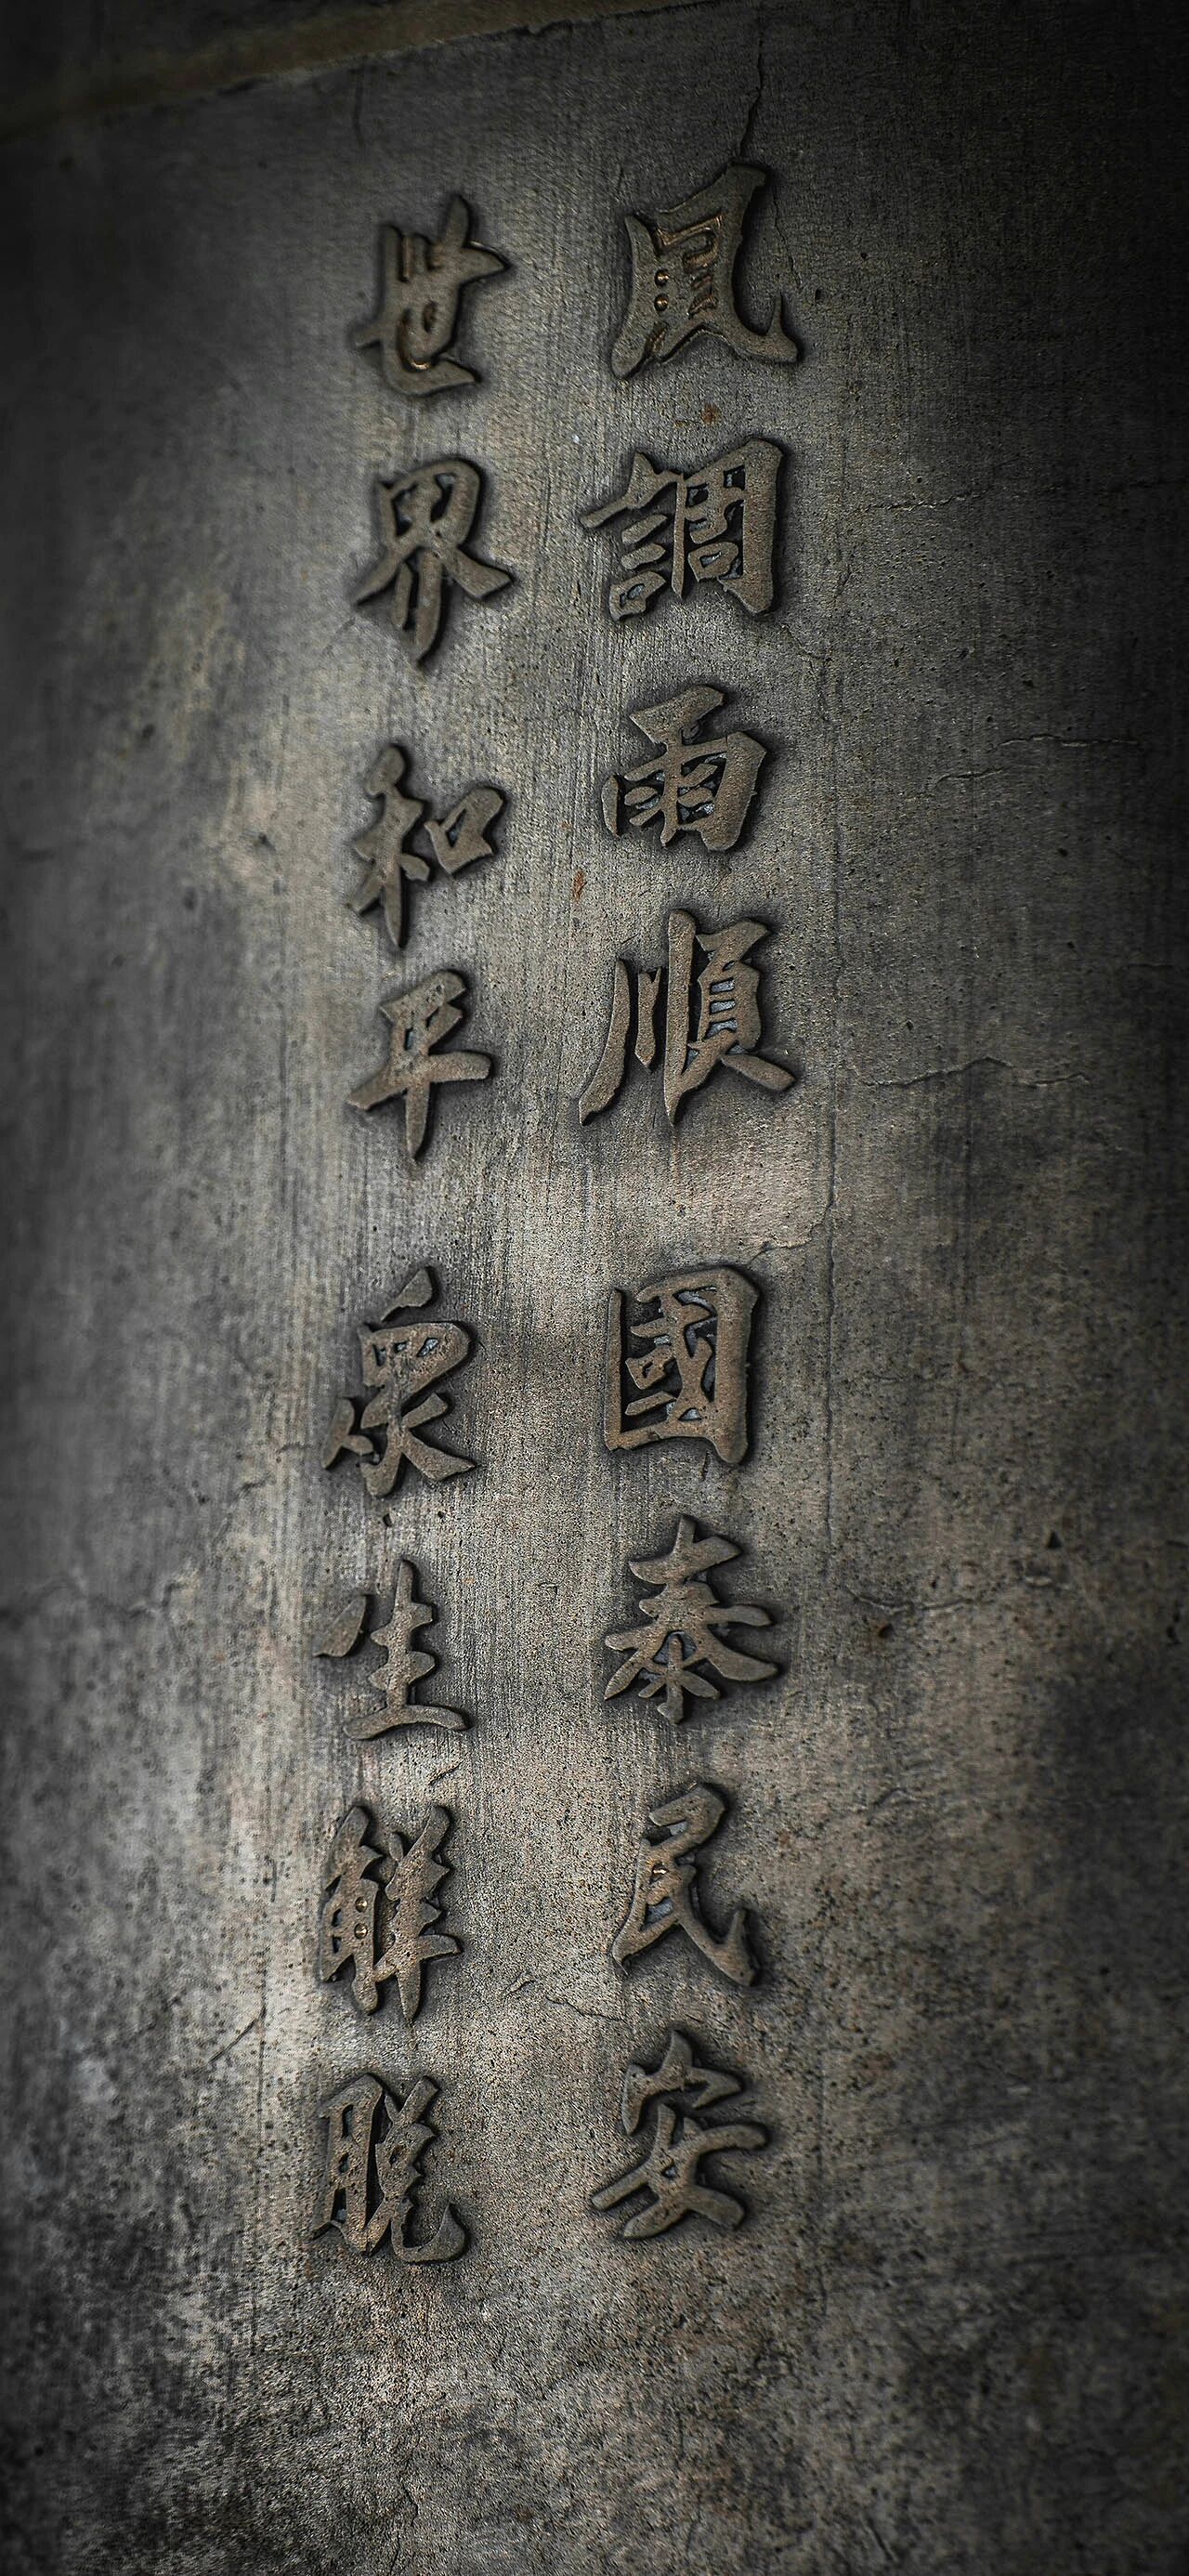 風調雨順國泰民安
世界和平眾生解脫